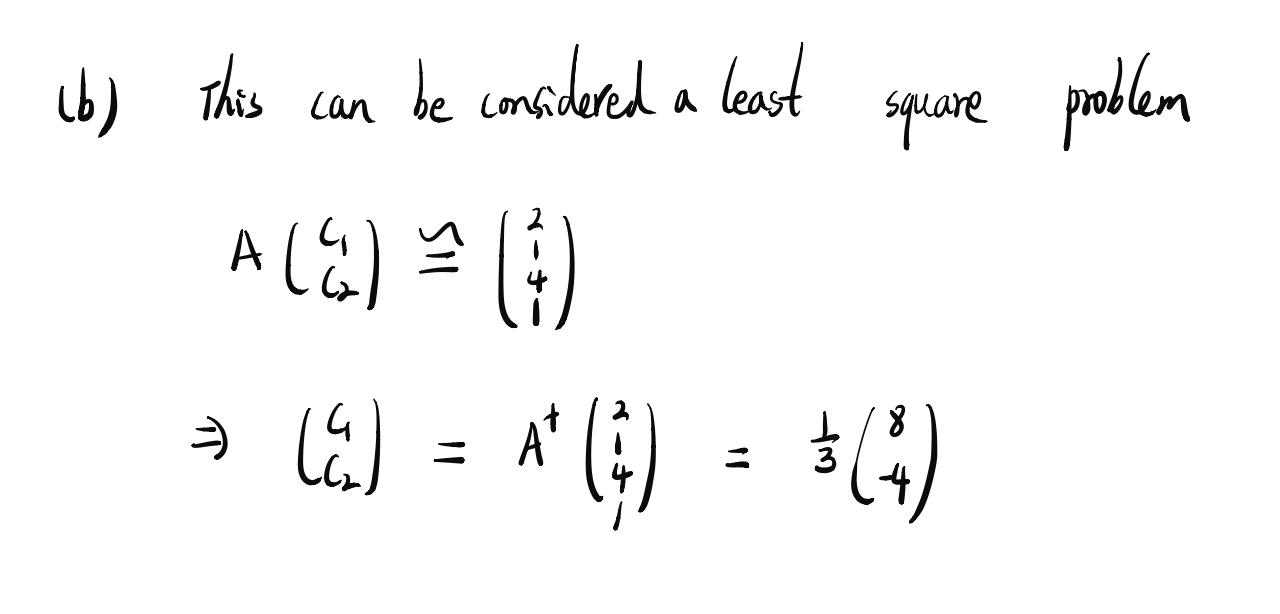 (b) This can be considered a least square problem
A (C₁ C₂) ≅ (2 1 4 1)
⇒ (C₁ C₂) = A⁺ (2 1 4 1) = 1/3 (8 -4)